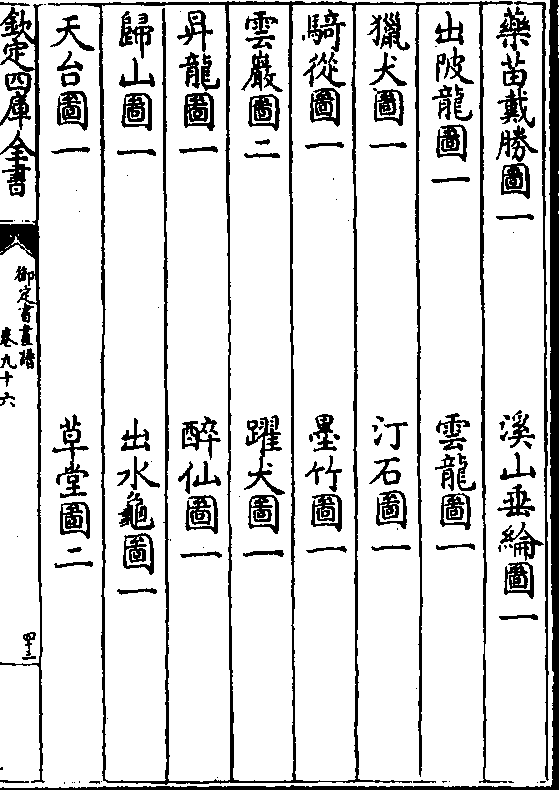 藥苗戴勝圖一　溪山垂綸圖一
出陂龍圖一　雲龍圖一
獵犬圖一　汀石圖一
騎從圖一　墨竹圖一
雲巖圖二　躍犬圖一
昇龍圖一　醉仙圖一
歸山圖一　出水龜圖一
天台圖一　草堂圖二
欽定四庫全書
御定書畫譜
卷九十六
四十三